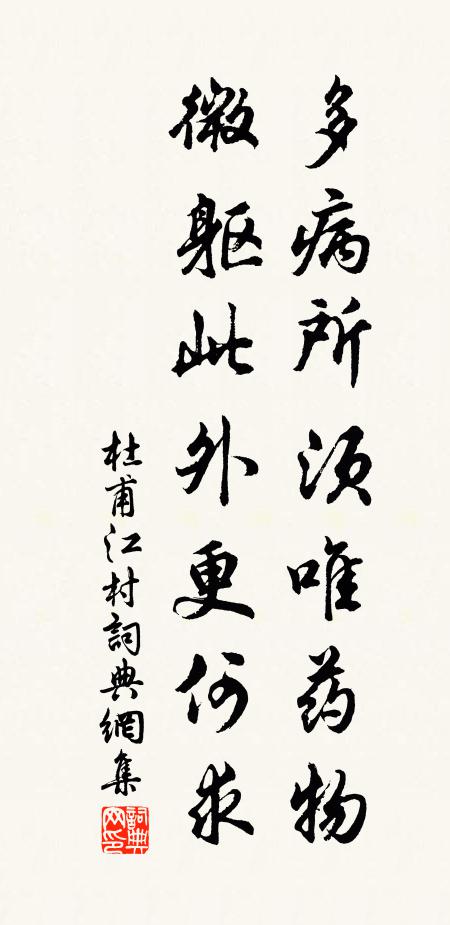 多病所须唯药物
微躯此外更何求
杜甫江村詞典網集
詞典网印